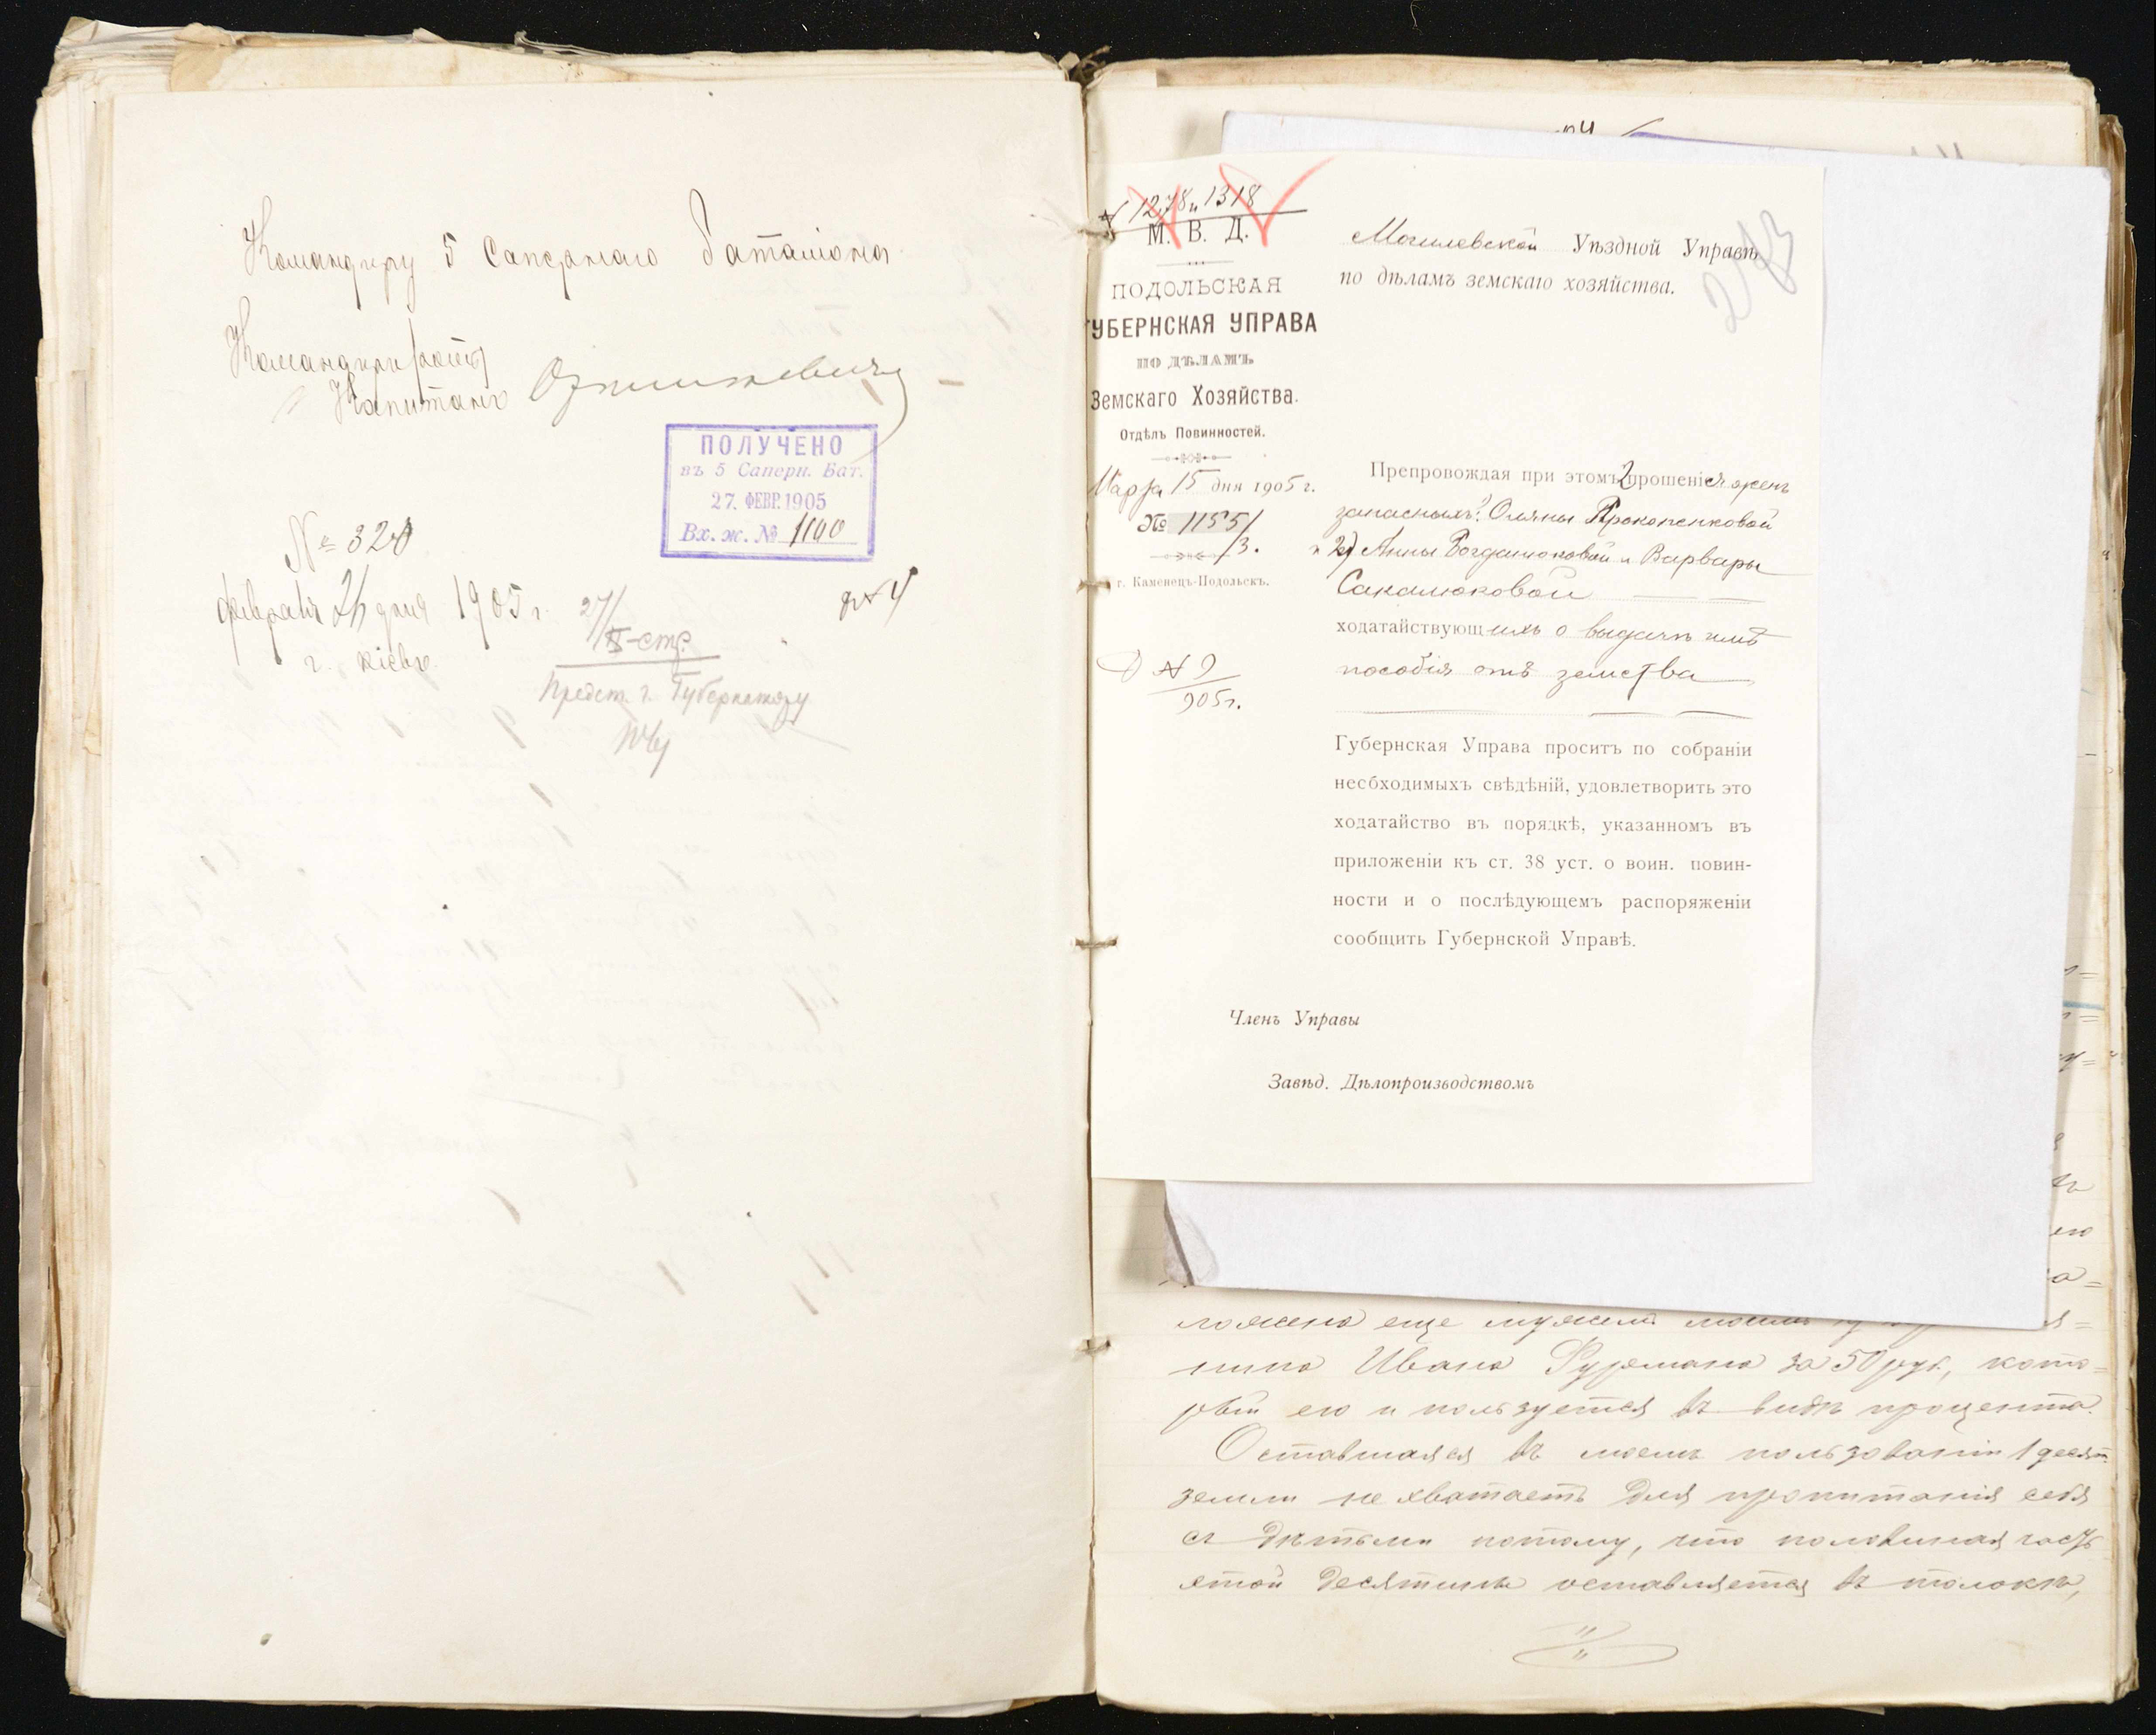 Командиру 5 Сапернаго баталіона
Командиръ роты
Капитанъ
ПОЛУЧЕНО
въ 5 Саперн. Бат.
27. ФЕВР. 1905
Вх. ж. № 1100
№ 320
февраля 26 дня 1905 г.
г. Кіевъ.
27/II-стр.
Предст. г. Губернатору
№ 1278 и 1318
М. В. Д.
ПОДОЛЬСКАЯ
ГУБЕРНСКАЯ УПРАВА
ПО ДѢЛАМЪ
Земскаго Хозяйства.
Отдѣлъ Повинностей.
Марта 15 дня 1905 г.
№ 1155/3.
г. Каменецъ-Подольскъ.
Д № 9
905 г.
Могилевской Уѣздной Управѣ
по дѣламъ земскаго хозяйства.
Препровождая при этомъ 2 прошенія женъ
запасныхъ: Оляны Прокопенковой
и 2) Анны Богданюковой и Варвары
Сакалюковой
ходатайствующихъ о выдачѣ имъ
пособія отъ земства
Губернская Управа проситъ по собраніи
несбходимыхъ свѣдѣній, удовлетворить это
ходатайство въ порядкѣ, указанномъ въ
приложеніи къ ст. 38 уст. о воин. повин-
ности и о послѣдующемъ распоряженіи
сообщить Губернской Управѣ.
Членъ Управы
Завѣд. Дѣлопроизводствомъ
ложена еще мужемъ моимъ
нина Ивана Фурмана за 50 руб., кото-
рый ею и пользуется въ видѣ процента.
Оставшаяся въ моемъ пользованіи 1 десят.
земли не хватаетъ для пропитанія себя
съ дѣтьми потому, что половиная часть
этой десятины оставляется въ толоки,